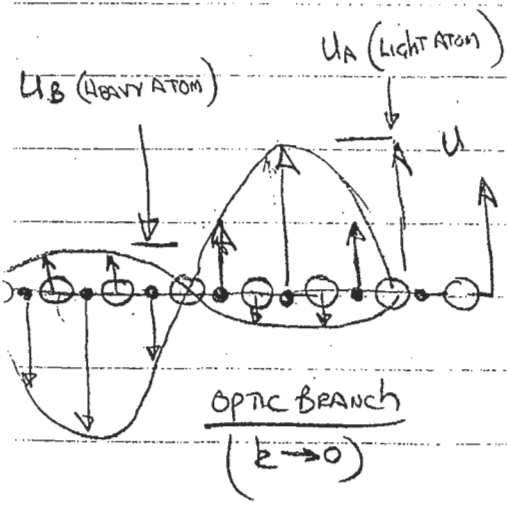 U_A (LIGHT ATOM)
U_B (HEAVY ATOM)
U
OPTIC BRANCH
(k → 0)